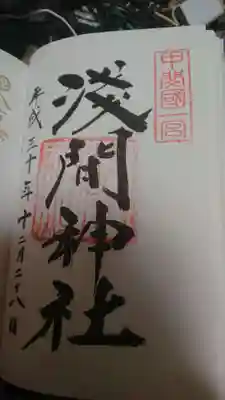 甲斐國一宮
淺間神社
平成三十年十二月二十八日